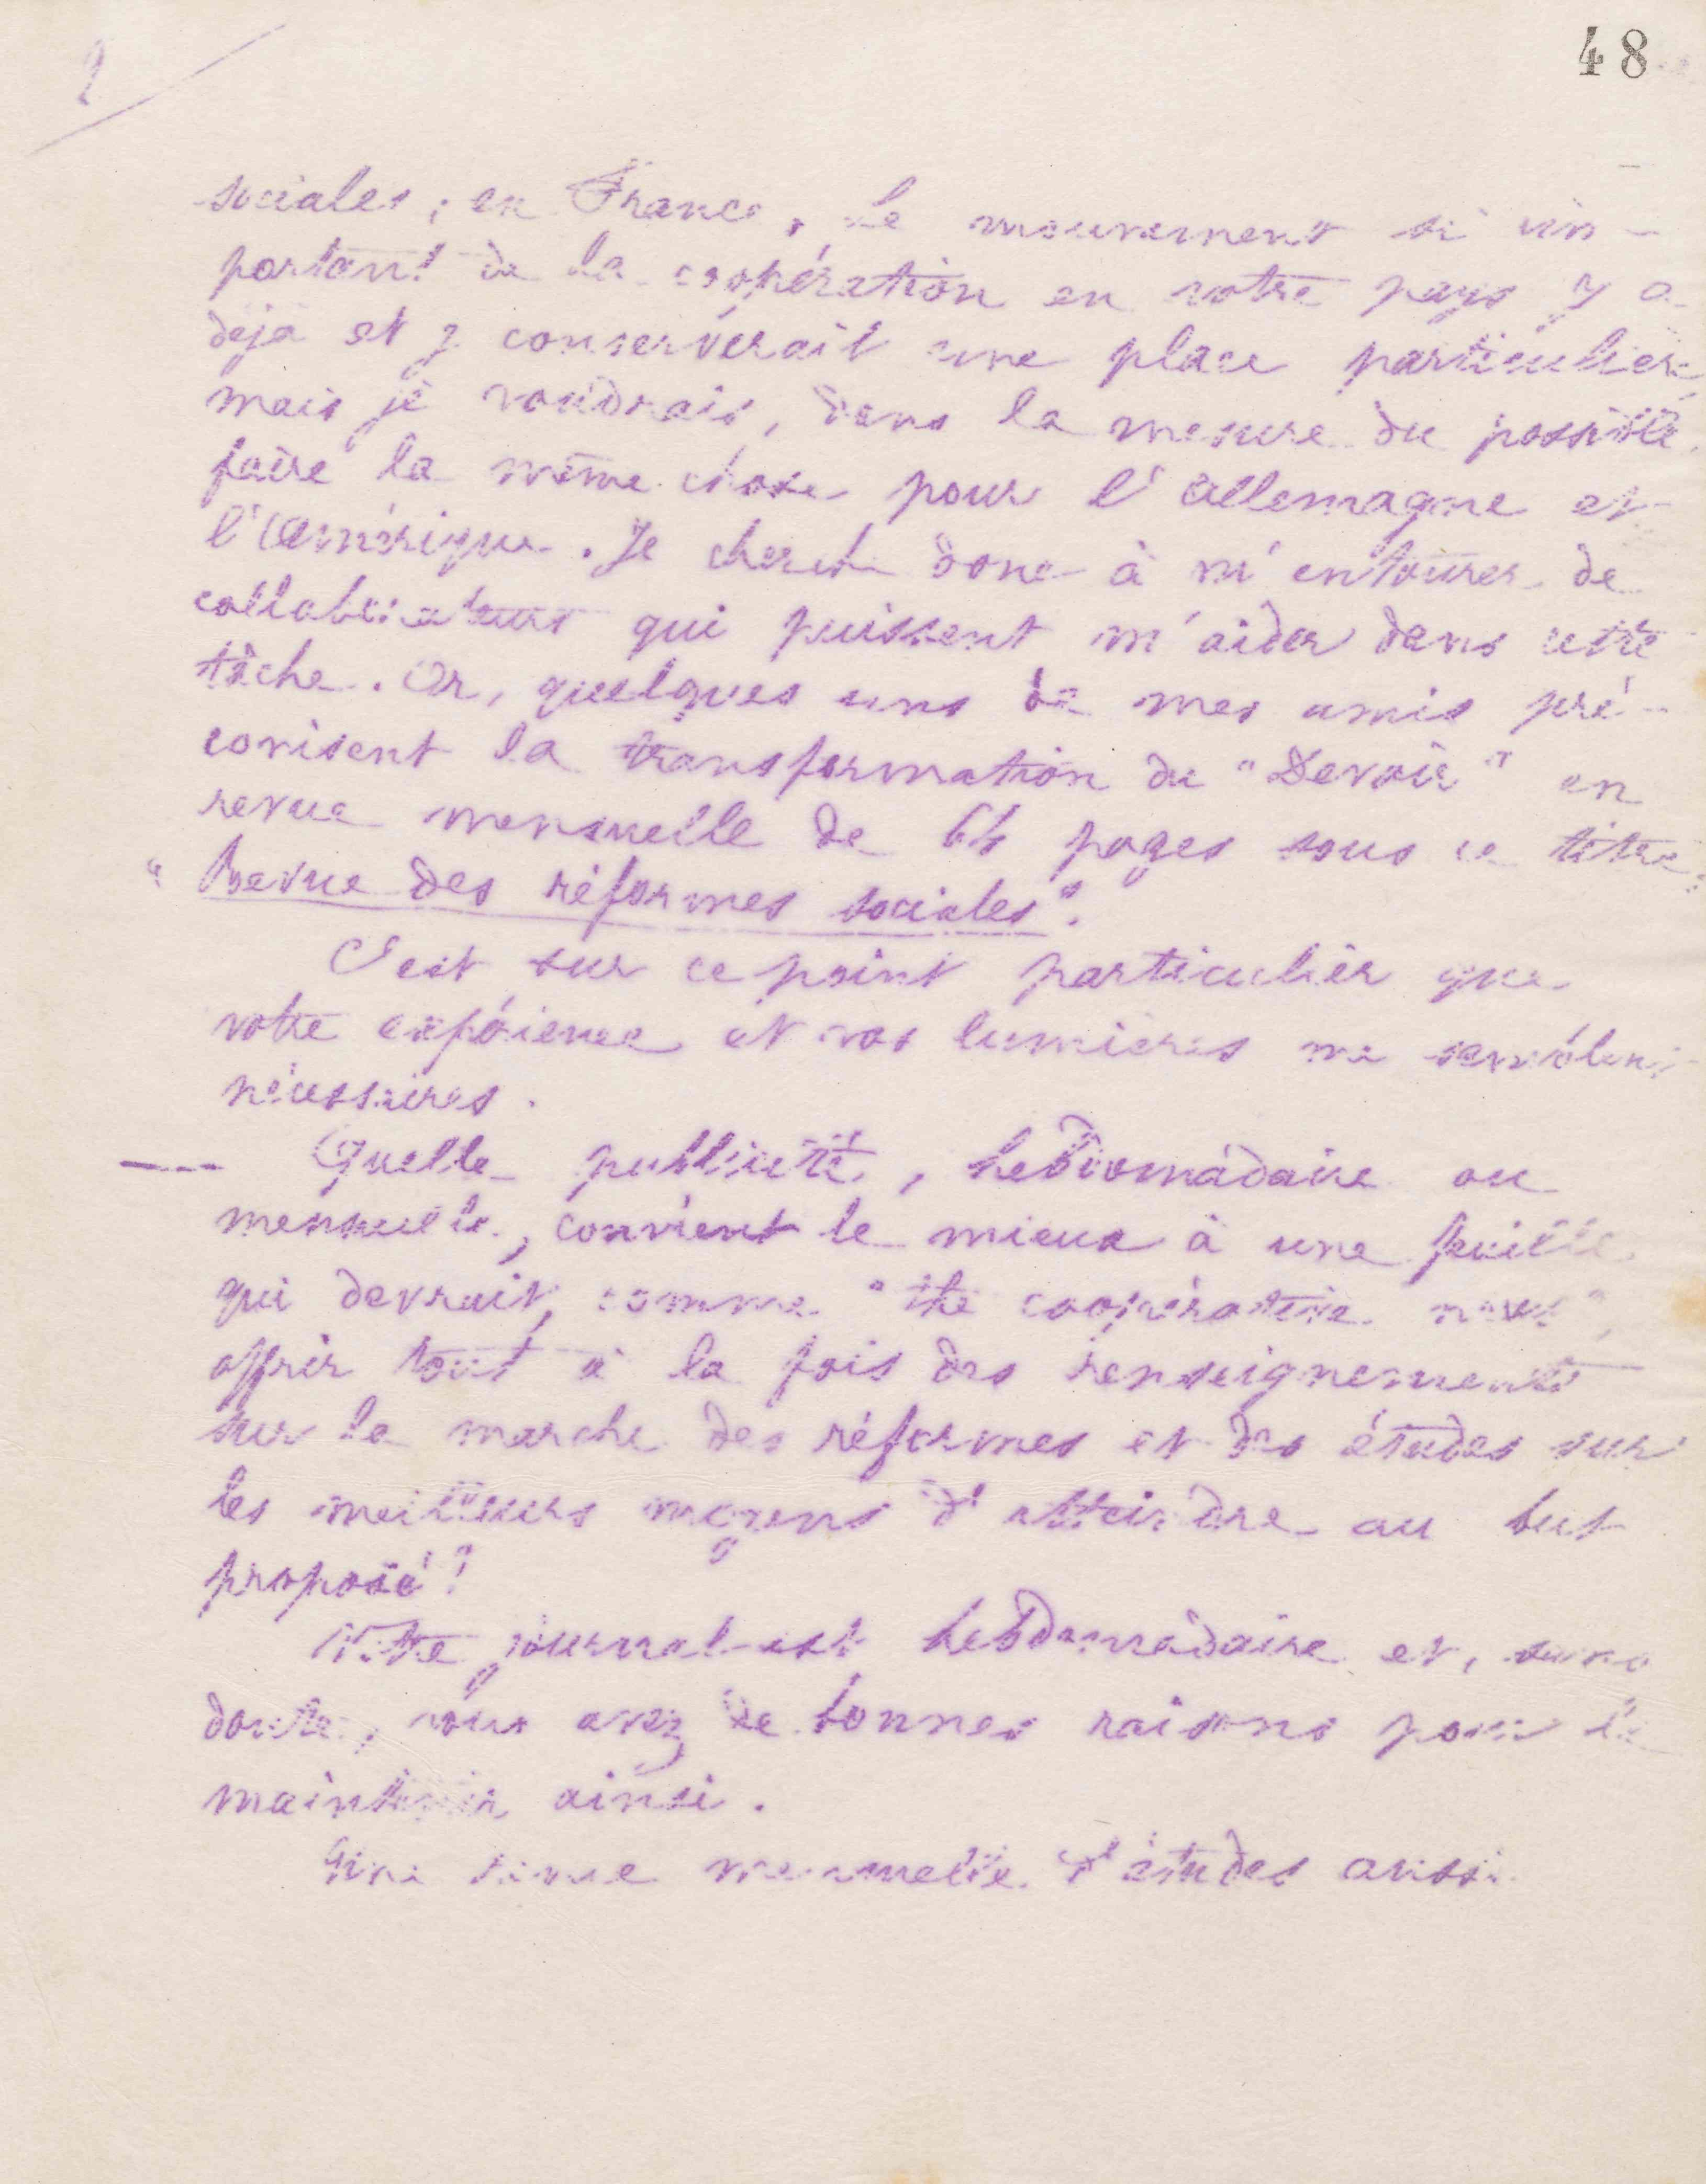 2
48
sociales; en France. Le mouvement si im-
portant de la coopération en votre pays y a
déjà et y conserverait une place particulière
mais je voudrais, dans la mesure du possible,
faire la même chose pour l'Allemagne et
l'Amérique. Je cherche donc à m'entourer de
collaborateurs qui puissent m'aider dans cette
tâche. Or, quelques uns de mes amis pré-
conisent la transformation du "Devoir" en
revue mensuelle de 64 pages sous ce titre:
"Revue des réformes sociales".
C'est sur ce point particulier que
votre expérience et vos lumières me semblent
nécessaires.
--- Quelle publicité, hebdomadaire ou
mensuelle, convient le mieux à une feuille
qui devrait, comme "the coopérative news",
offrir tout à la fois des renseignements
sur la marche des réformes et des études sur
les meilleurs moyens d'atteindre au but
proposé?
Votre journal est hebdomadaire et, sans
doute, vous avez de bonnes raisons pour le
maintenir ainsi.
Une revue mensuelle d'études aussi